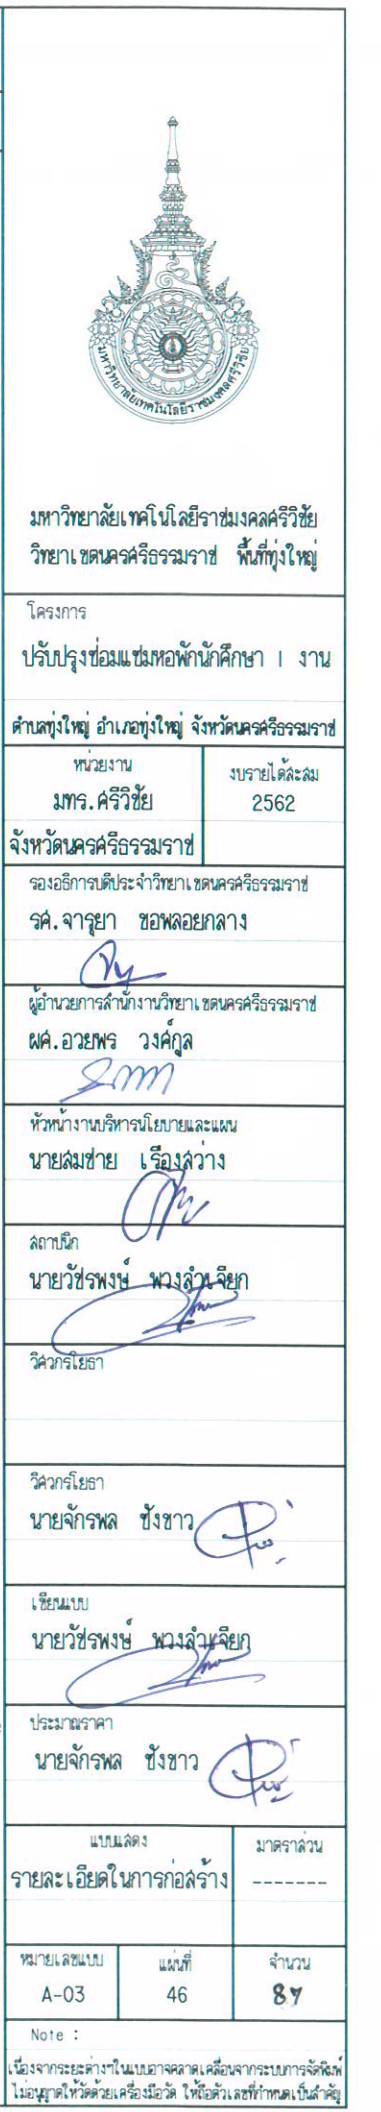 มหาวิทยาลัยเทคโนโลยีราชมงคลศรีวิชัย
มหาวิทยาลัยเทคโนโลยีราชมงคลศรีวิชัย
วิทยาเขตนครศรีธรรมราช พื้นที่ทุ่งใหญ่
โครงการ
ปรับปรุงซ่อมแซมหอพักนักศึกษา 1 งาน
ตำบลทุ่งใหญ่ อำเภอทุ่งใหญ่ จังหวัดนครศรีธรรมราช
หน่วยงาน งบรายได้สะสม
มทร.ศรีวิชัย 2562
จังหวัดนครศรีธรรมราช
รองอธิการบดีประจำวิทยาเขตนครศรีธรรมราช
รศ.จารุยา ขอพลอยกลาง
ผู้อำนวยการสำนักงานวิทยาเขตนครศรีธรรมราช
ผศ.อวยพร วงศ์กูล
หัวหน้างานบริหารนโยบายและแผน
นายสมชาย เรืองสว่าง
สถาปนิก
นายวัชรพงษ์ พวงลำเจียก
วิศวกรโยธา
วิศวกรโยธา
นายจักรพล ชังขาว
เขียนแบบ
นายวัชรพงษ์ พวงลำเจียก
ประมาณราคา
นายจักรพล ชังขาว
แบบแสดง มาตราส่วน
รายละเอียดในการก่อสร้าง -------
หมายเลขแบบ แผ่นที่ จำนวน
A-03 46 87
Note :
เนื่องจากระยะต่างๆในแบบอาจคลาดเคลื่อนจากระบบการจัดพิมพ์
ไม่อนุญาตให้วัดด้วยเครื่องมือวัด ให้ถือตัวเลขที่กำหนดเป็นสำคัญ